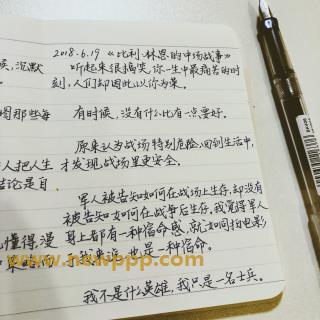 2018.6.19 《比利·林恩的中场战事》
候,沉默
听起来很搞笑,你一生中最痛苦的时
刻,人们却因此以你为荣。
那些每
有时候,没有什么比有一点要好。
原来认为战场特别危险,回到生活中,
人把人生
才发现战场里更安全。
结论是自
军人被告知如何在战场上存,却没有
被告知如何在战争后生存,我觉得军人
懂得漫
身上都有一种宿命感,就如同拍电影
也是一种宿命。
www.newppp.com
我不是什么英雄,我只是一名士兵。